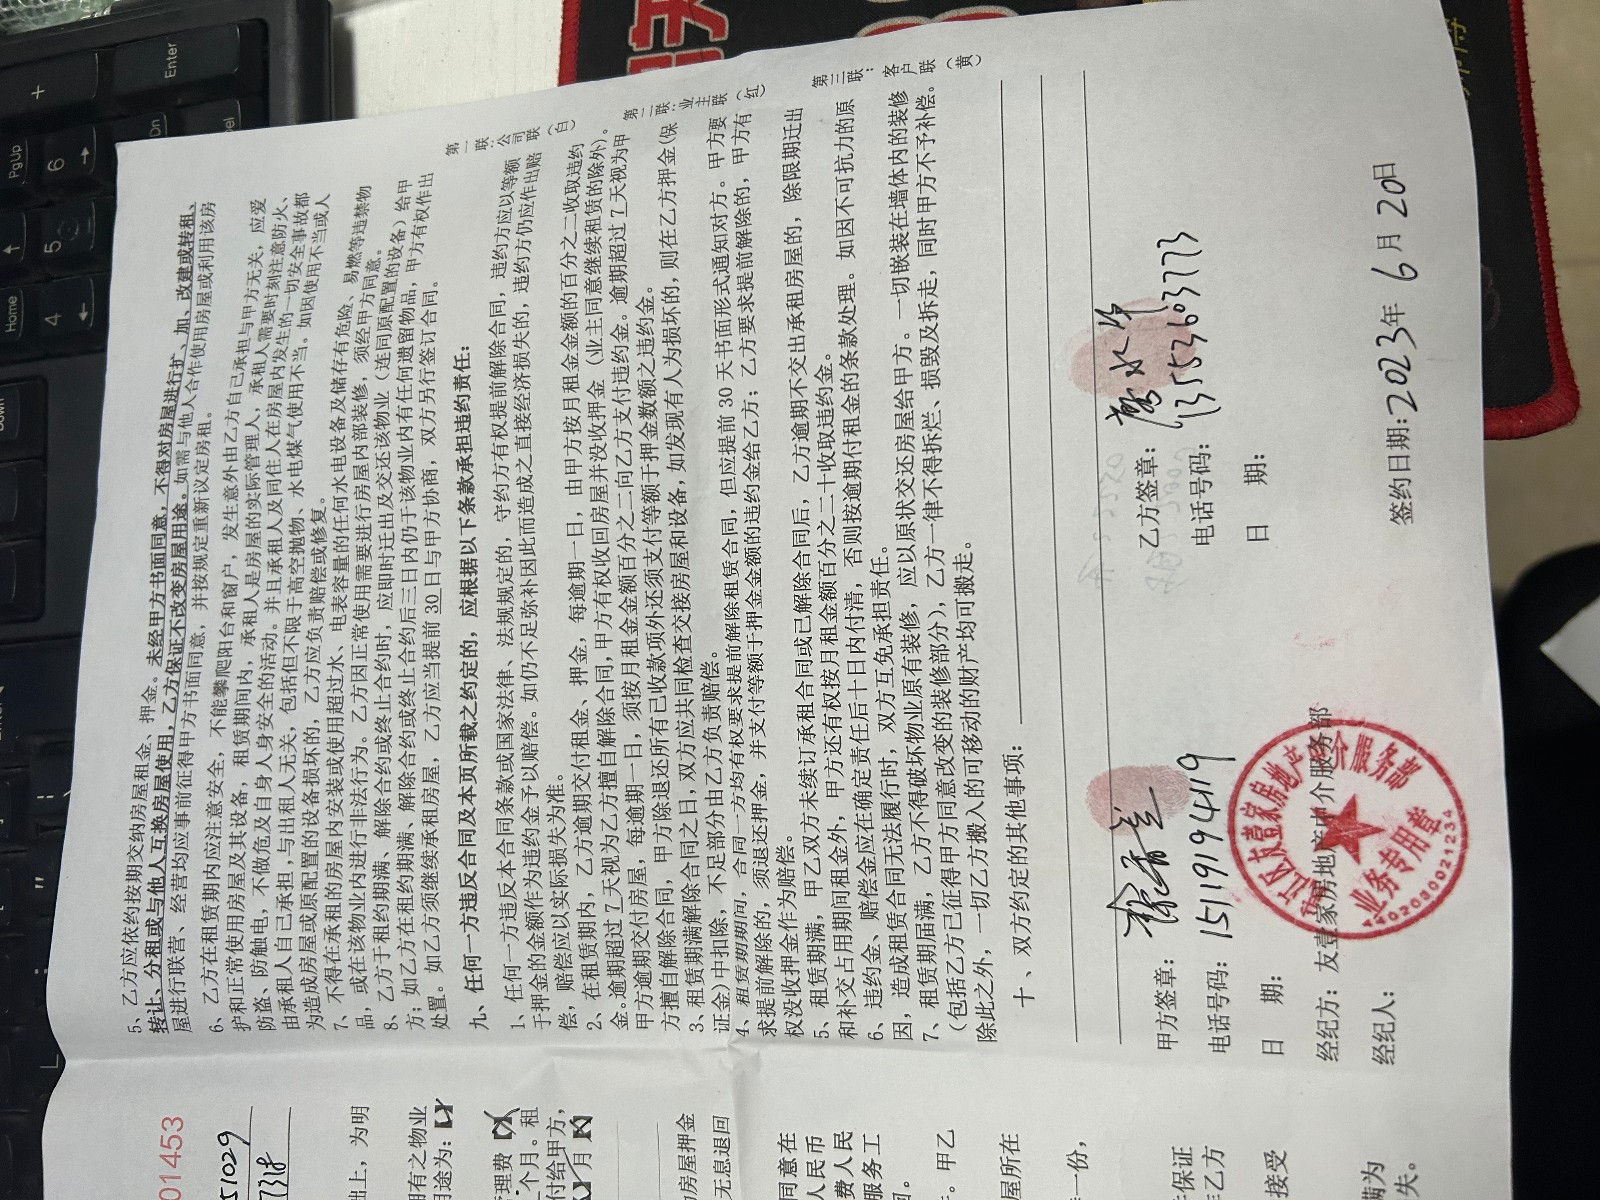 5、乙方应依约按期交纳房屋租金、押金。未经甲方书面同意，不得对房屋进行扩、加、改建或转租、
转让、分租或与他人互换房屋使用，乙方保证不改变房屋用途。如需与他人合作使用房屋或利用该房
屋进行联营、经营均应事前征得甲方书面同意，并按规定重新议定房租。
6、乙方在租赁期内应注意安全，不能攀爬阳台和窗户，发生意外由乙方自己承担与甲方无关，应爱
护和正常使用房屋及其设备，租赁期间内，承租人是房屋的实际管理人，承租人需要时刻注意防火、
防盗、防触电，不做危及自身人身安全的活动。并且承租人及同住人在房屋内发生的一切安全事故都
由承租人自己承担，与出租人无关，包括但不限于高空抛物、水电煤气使用不当。如因使用不当或人
为造成房屋或原配置的设备损坏的，乙方应负责赔偿或修复。
7、不得在承租的房屋内安装或使用超过水、电表容量的任何水电设备及储存有危险、易燃等违禁物
品，或在该物业内进行非法行为。乙方因正常使用需要进行房屋内部装修，须经甲方同意。
8、乙方于租约期满、解除合约或终止合约时，应即时迁出及交还该物业（连同原配置的设备）给甲
方；如乙方在租约期满、解除合约或终止合约后三日内仍于该物业内有任何遗留物品，甲方有权作出
处置。如乙方须继续承租房屋，乙方应当提前 30 日与甲方协商，双方另行签订合同。
九、任何一方违反合同及本页所载之约定的，应根据以下条款承担违约责任：
1、任何一方违反本合同条款或国家法律、法规规定的，守约方有权提前解除合同，违约方应以等额
于押金的金额作为违约金予以赔偿。如仍不足弥补因此而造成之直接经济损失的，违约方仍应作出赔
偿，赔偿应以实际损失为准。
2、在租赁期内，乙方逾期交付租金、押金，每逾期一日，由甲方按月租金金额的百分之二收取违约
金。逾期超过 7 天视为乙方擅自解除合同，甲方有权收回房屋并没收押金（业主同意继续租赁的除外）。
甲方逾期交付房屋，每逾期一日，须按月租金金额百分之二向乙方支付违约金。逾期超过 7 天视为甲
方擅自解除合同，甲方除退还所有已收款项外还须支付等额于押金数额之违约金。
3、租赁期满解除合同之日，双方应共同检查交接房屋和设备，如发现有人为损坏的，则在乙方押金（保
证金）中扣除，不足部分由乙方负责赔偿。
4、租赁期期间，合同一方均有权要求提前解除租赁合同，但应提前 30 天书面形式通知对方。甲方要
求提前解除的，须退还押金，并支付等额于押金金额的违约金给乙方；乙方要求提前解除的，甲方有
权没收押金作为赔偿。
5、租赁期满，甲乙双方未续订承租合同或已解除合同后，乙方逾期不交出承租房屋的，除限期迁出
和补交占用期间租金外，甲方还有权按月租金额百分之二十收取违约金。
6、违约金、赔偿金应在确定责任后十日内付清，否则按逾期付租金的条款处理。如因不可抗力的原
因，造成租赁合同无法履行时，双方互免承担责任。
7、租赁期届满，乙方不得破坏物业原有装修，应以原状交还房屋给甲方。一切嵌装在墙体内的装修
（包括乙方已征得甲方同意改变的装修部分），乙方一律不得拆烂、损毁及拆走，同时甲方不予补偿。
除此之外，一切乙方搬入的可移动的财产均可搬走。
十、双方约定的其他事项：
甲方签章：
乙方签章：
电话号码：15119194119
电话号码：13555603773
日 期：
日 期：
经纪方：友壹家房地产中介服务部
经纪人：
签约日期：2023年 6月 20日
区友壹家房地产中介服务部
业务专用章
第一联：公司联（白）
第二联：业主联（红）
第三联：客户联（黄）
01453
51029
7318
出上，为明
拥有之物业
用途为：【
管理费【
个月。租
付给甲方，
月【
为房屋押金
无息退回
同意在
人民币
费人民
服务工
。甲乙
屋所在
一份，
保证
乙方
接受
满为
失。
Enter
+
PgUp
Dn
6
5
Home
4